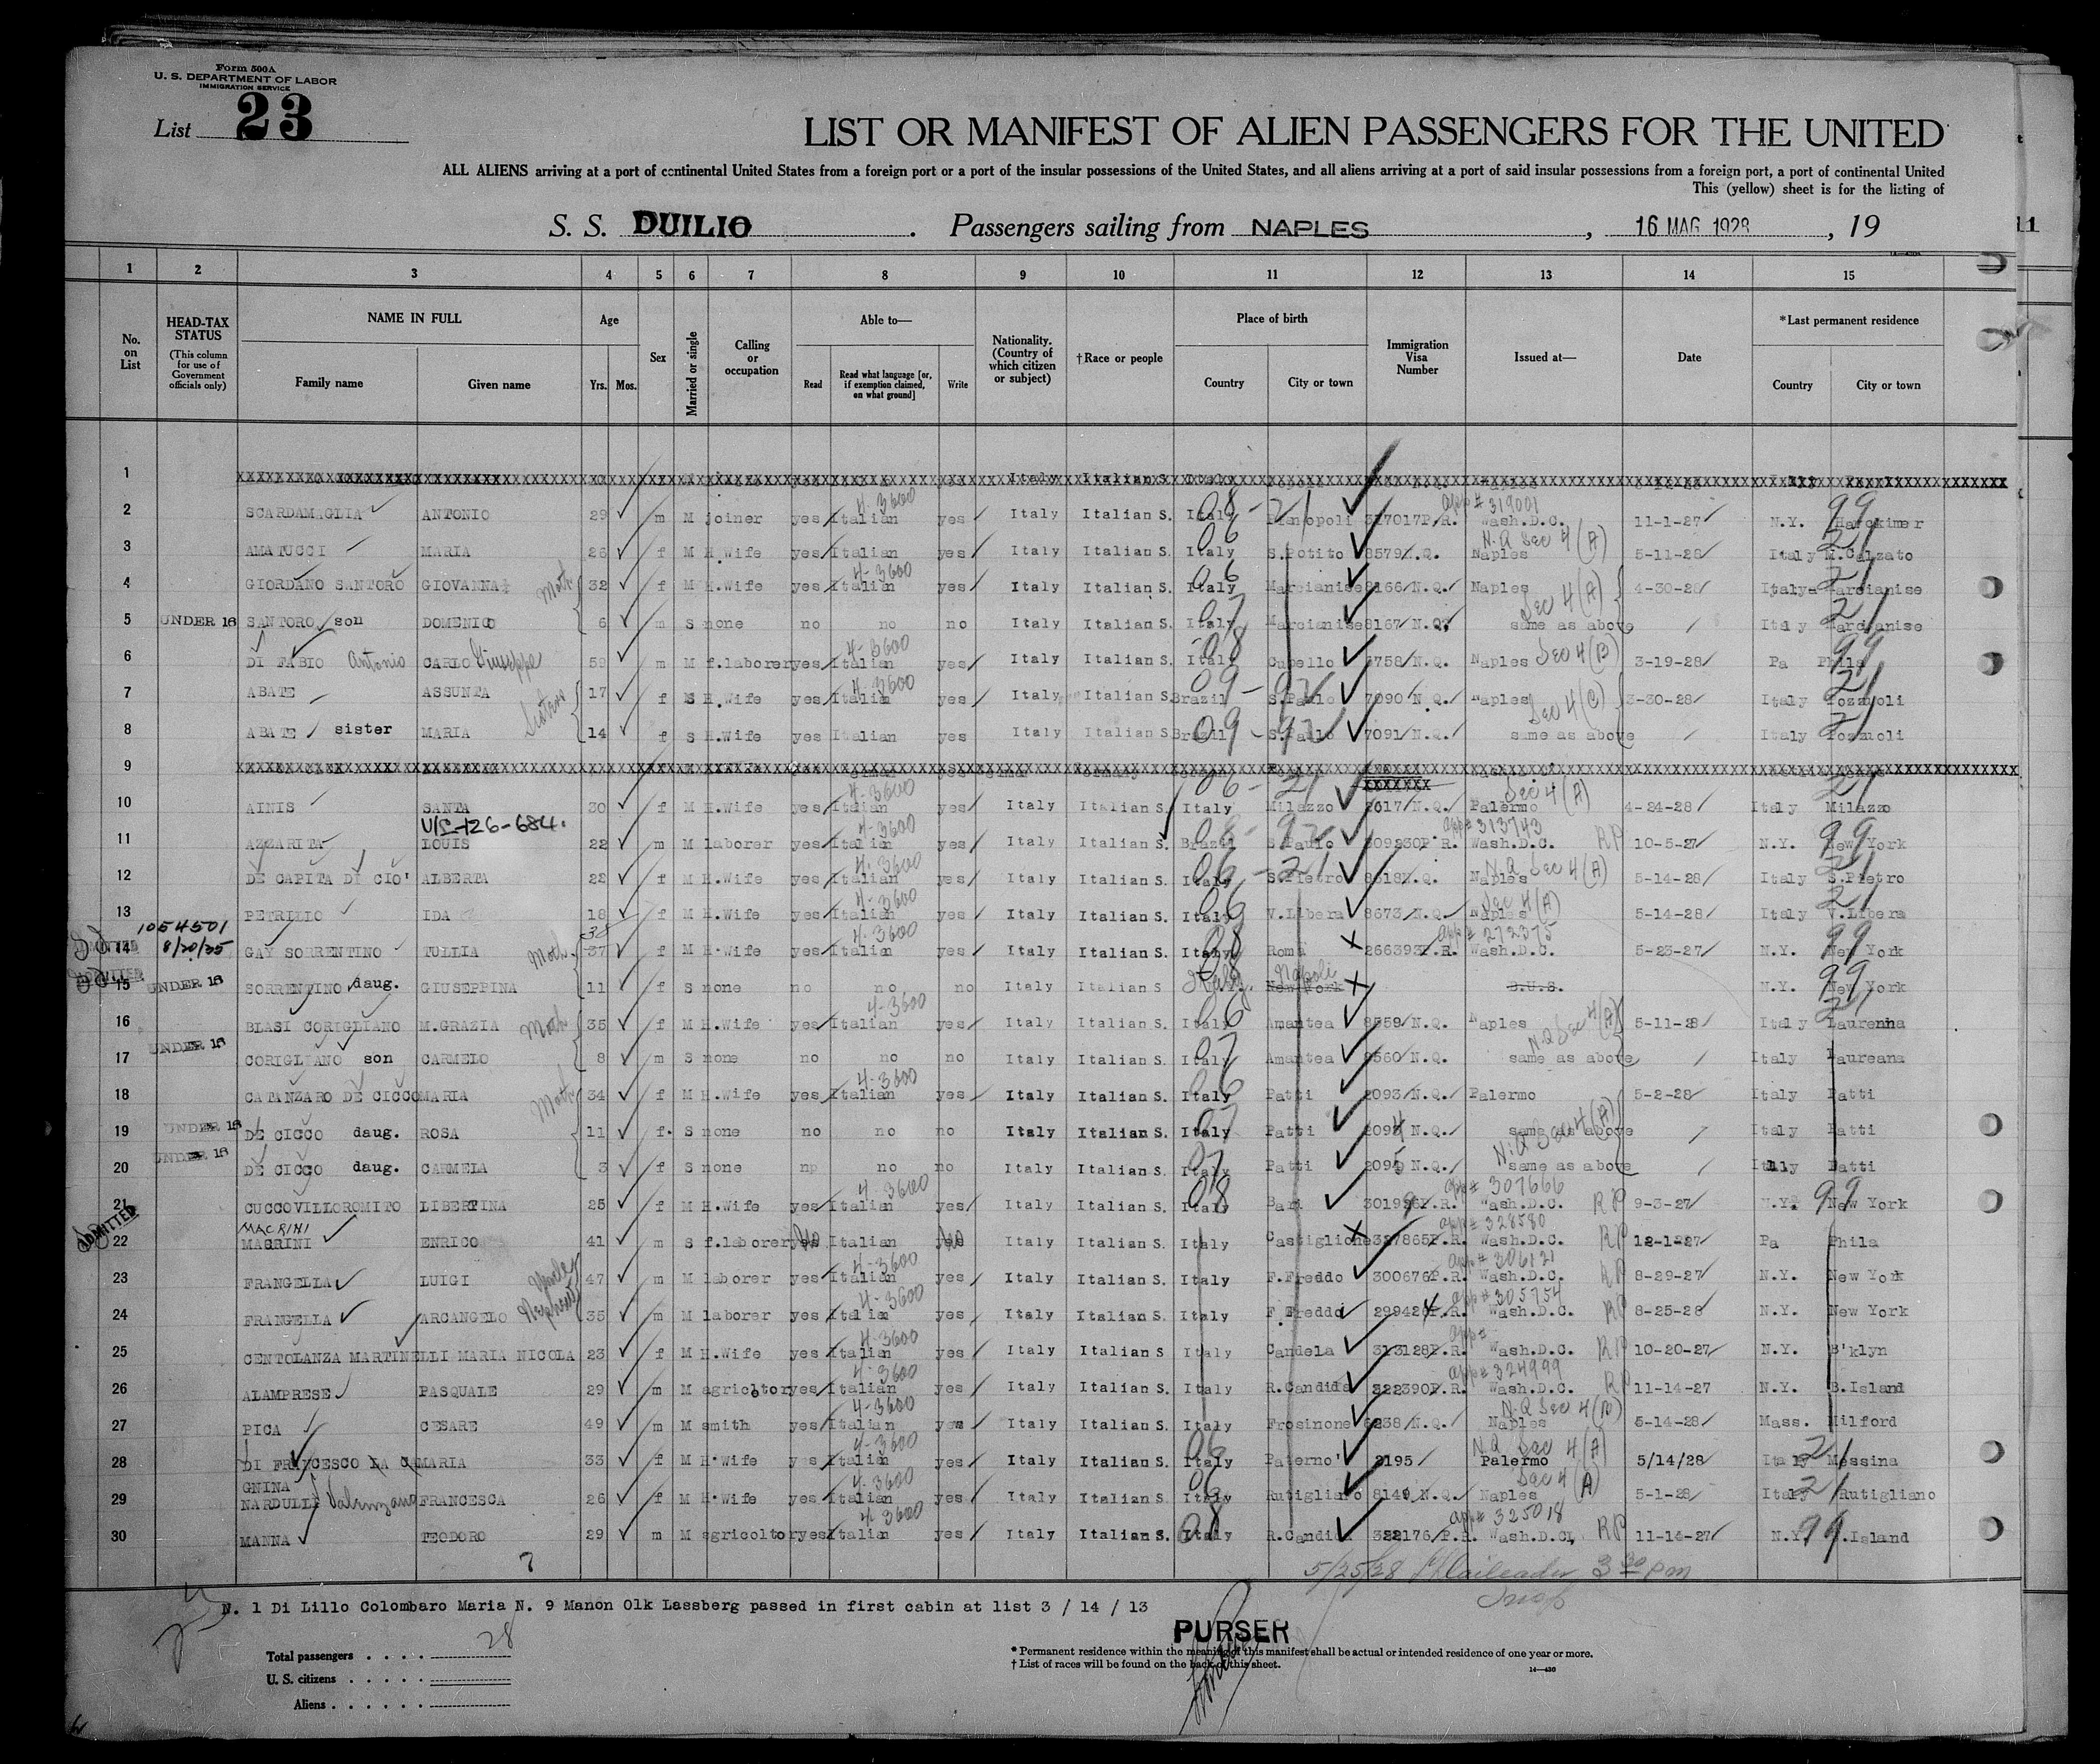 Form 500A
U. S. DEPARTMENT OF LABOR
IMMIGRATION SERVICE
List 23
LIST OR MANIFEST OF ALIEN PASSENGERS FOR THE UNITED
ALL ALIENS arriving at a port of continental United States from a foreign port or a port of the insular possessions of the United States, and all aliens arriving at a port of said insular possessions from a foreign port, a port of continental United
This (yellow) sheet is for the listing of
S. S. DUILIO . Passengers sailing from NAPLES , 16 MAG 1928 , 19
1 2 3 4 5 6 7 8 9 10 11 12 13 14 15
No. on List
HEAD-TAX STATUS (This column for use of Government officials only)
NAME IN FULL
Family name Given name
Age
Yrs. Mos.
Sex
Married or single
Calling or occupation
Able to—
Read Read what language [or, if exemption claimed, on what ground] Write
Nationality. (Country of which citizen or subject)
†Race or people
Place of birth
Country City or town
Immigration Visa Number
Issued at—
Date
*Last permanent residence
Country City or town
1 Italy Italian S. Italy
2 SCARDAMAGLIA ANTONIO 29 m M joiner yes Italian 4-3600 yes Italy Italian S. Italy 08-21 317017P.R. app# 319001 Wash.D.C. 11-1-27 N.Y. 99 Harckimer
3 AMATUCCI MARIA 26 f M H.Wife yes Italian yes Italy Italian S. Italy 06 S.Potito 8579 N.Q. Naples N.Q Sec 4(A) 5-11-28 Italy 21 M.Calzato
4 GIORDANO SANTORO GIOVANNA Moth 32 f M H.Wife yes Italian 4-3600 yes Italy Italian S. Italy 06 Marcianise 8166/N.Q. Naples Sec 4(A) 4-30-28 Italy 21 Marcianise
5 UNDER 16 SANTORO son DOMENICO 6 m S none no no no Italy Italian S. Italy 07 Marcianise 8167/N.Q. same as above Italy 21 Marcianise
6 DI FABIO Antonio CARLO Giuseppe 59 m M f.laborer yes Italian 4-3600 yes Italy Italian S. Italy 08 Cupello 6758/N.Q. Naples Sec 4(B) 3-19-28 Pa 99 Phila
7 ABATE ASSUNTA Sisters 17 f S H.Wife yes Italian 4-3600 yes Italy Italian S. Brazil 09-92 S.Paulo 7090 N.Q. Naples Sec 4(C) 3-30-28 Italy 21 Pozzuoli
8 ABATE sister MARIA 14 f S H.Wife yes Italian yes Italy Italian S. Brazil 09-92 S.Paulo 7091/N.Q. same as above Italy 21 Pozzuoli
9
10 AINIS SANTA 30 f M H.Wife yes Italian 4-3600 yes Italy Italian S. Italy 06-21 Milazzo 2017/N.Q. Palermo Sec 4(A) 4-24-28 Italy 21 Milazzo
V/L-126-684.
11 AZZARITA LOUIS 22 m M laborer yes Italian 4-3600 yes Italy Italian S. Brazil 08-92 S.Paulo 309230P.R. app# 313743 Wash.D.C. RP 10-5-27 N.Y. 99 New York
12 DE CAPITA DI CIO' ALBERTA 22 f M H.Wife yes Italian 4-3600 yes Italy Italian S. Italy 06-21 S.Pietro 8618N.Q. Naples N.Q Sec 4(A) 5-14-28 Italy 21 S.Pietro
13 PETRILLO IDA 18 f M H.Wife yes Italian 4-3600 yes Italy Italian S. Italy 06 V.Libera 8673/N.Q. Naples Sec 4(A) 5-14-28 Italy 21 V.Libera
1054501
14 ADMITTED 8/20/35 GAY SORRENTINO TULLIA Moth. 38 37 f M H.Wife yes Italian 4-3600 yes Italy Italian S. Italy 08 Roma 266393P.R. app# 272375 Wash.D.C. 5-23-27 N.Y. 99 New York
15 ADMITTED UNDER 16 SORRENTINO daug. GIUSEPPINA 11 f S none no no no Italy Italian S Italy 08 Napoli New York B.U.S. N.Y. 99 New York
16 BLASI CORIGLIANO M.GRAZIA Moth 35 f M H.Wife yes Italian 4-3600 yes Italy Italian S. Italy 06 Amantea 8559/N.Q. Naples N.Q Sec 4(A) 5-11-28 Italy 21 Laurenna
17 UNDER 16 CORIGLIANO son CARMELO 8 m S none no no no Italy Italian S. Italy 07 Amantea 8560/N.Q. same as above Italy Laureana
18 CATANZARO DE CICCO MARIA Moth 34 f M H.Wife yes Italian 4-3600 yes Italy Italian S. Italy 06 Patti 2093/N.Q. Palermo 5-2-28 Italy Patti
19 UNDER 16 DE CICCO daug. ROSA 11 f. S none no no no Italy Italian S. Italy 07 Patti 2094 N.Q. same as above N.Q Sec 4(A) Italy Patti
20 UNDER 16 DE CICCO daug. CARMELA 3 f S none np no no Italy Italian S. Italy 07 Patti 2095 N.Q. same as above Italy Patti
21 CUCCOVILLOROMITO LIBERTINA 25 f M H.Wife yes Italian 4-3600 yes Italy Italian S. Italy 08 Bari P.R. app# 307666 Wash.D.C. RP 9-3-27 N.Y. 99 New York
ADMITTED MACRINI
22 MAGRINI ENRICO 41 m S f.laborer No Italian No Italy Italian S. Italy Castiglione 327865P.R. app# 328580 Wash.D.C. RP 12-1-27 Pa Phila
23 FRANGELLA LUIGI Uncle 47 m M laborer yes Italian 4-3600 yes Italy Italian S. Italy F.Freddo 300676P.R. app# 306121 Wash.D.C. RP 8-29-27 N.Y. New York
24 FRANGELLA ARCANGELO Nephew 35 m M laborer yes Italian 4-3600 yes Italy Italian S. Italy F.Freddo P.R. app# 305754 Wash.D.C. RP 8-25-28 N.Y. New York
25 CENTOLANZA MARTINELLI MARIA NICOLA 23 f M H.Wife yes Italian 4-3600 yes Italy Italian S. Italy Candela 313128P.R. app# Wash.D.C. RP 10-20-27 N.Y. B'klyn
26 ALAMPRESE PASQUALE 29 m M agricltor yes Italian 4-3600 yes Italy Italian S. Italy R.Candida 322390P.R. app# 324999 Wash.D.C. RP 11-14-27 N.Y. B.Island
27 PICA CESARE 49 m M smith yes Italian 4-3600 yes Italy Italian S. Italy Frosinone 6238/N.Q. Naples N.Q Sec 4(B) 5-14-28 Mass. Milford
28 DI FRANCESCO LA CA MARIA 33 f M H.Wife yes Italian 4-3600 yes Italy Italian S. Italy 06 Paterno' 2195 Palermo N.Q Sec 4(A) 5/14/28 Italy 21 Messina
GNINA
29 NARDULLI FRANCESCA 26 f M H.Wife yes Italian 4-3600 yes Italy Italian S. Italy 06 Rutigliano 8149 N.Q. Naples Sec 4(A) 5-1-28 Italy 21 Rutigliano
30 MANNA TEODORO 29 m M agricoltor yes Italian 4-3600 yes Italy Italian S. Italy 08 R.Candi 322176/P.R. app# 325018 Wash.D.C. RP 11-14-27 N.Y. 99 .Island
7
5/25/28 3 30 pm
Insp
N. 1 Di Lillo Colombaro Maria N. 9 Manon Olk Lassberg passed in first cabin at list 3 / 14 / 13
PURSER
Total passengers . . . . 28
U. S. citizens . . . . .
Aliens . . . . . .
* Permanent residence within the meaning of this manifest shall be actual or intended residence of one year or more.
† List of races will be found on the back of this sheet.
14—430